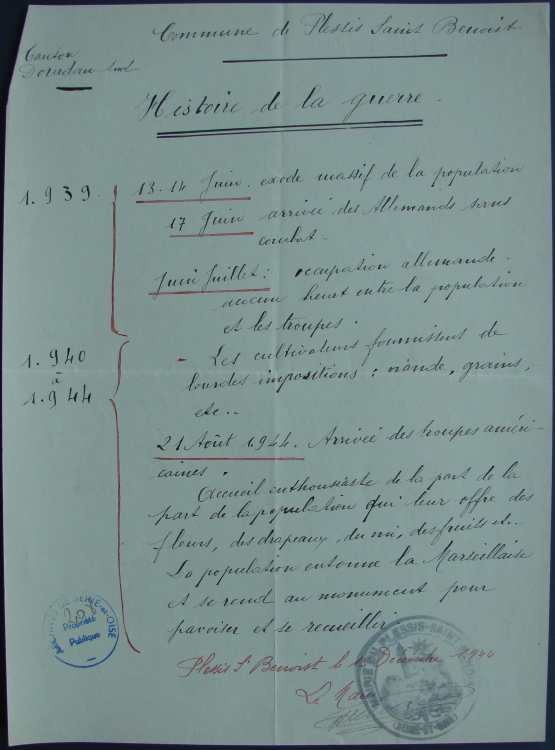 Commune de Plessis Saint Benoist
Canton
Dourdan Sud
Histoire de la guerre.
1.939.
13-14 Juin. exode massif de la population
17 Juin arrivée des Allemands sans
combat.
Juin Juillet: occupation allemande.
aucun heurt entre la population
et les troupes.
1.940
à
1.944
- Les cultivateurs fournissent de
lourdes impositions: viande, grains,
etc..
21 Août 1.944. Arrivée des troupes améri-
caines.
Accueil enthousiaste de la part de la
part de la population qui leur offre des
fleurs, des drapeaux, du vin, des fruits etc.
La population entonne la Marseillaise
et se rend au monument pour
pavoiser et se recueillir.
Plessis St Benoist le Décembre 1944
Le Maire
ARCHIVES DE SEINE-et-OISE
Propriété
Publique
MAIRIE DU PLESSIS-SAINT-BENOIST
(SEINE-ET-OISE)